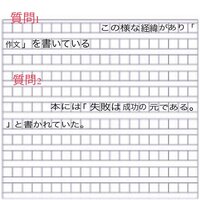 質問1
この様な経緯があり「
作文」を書いている
質問2
本には「失敗は成功の元である。
」と書かれていた。